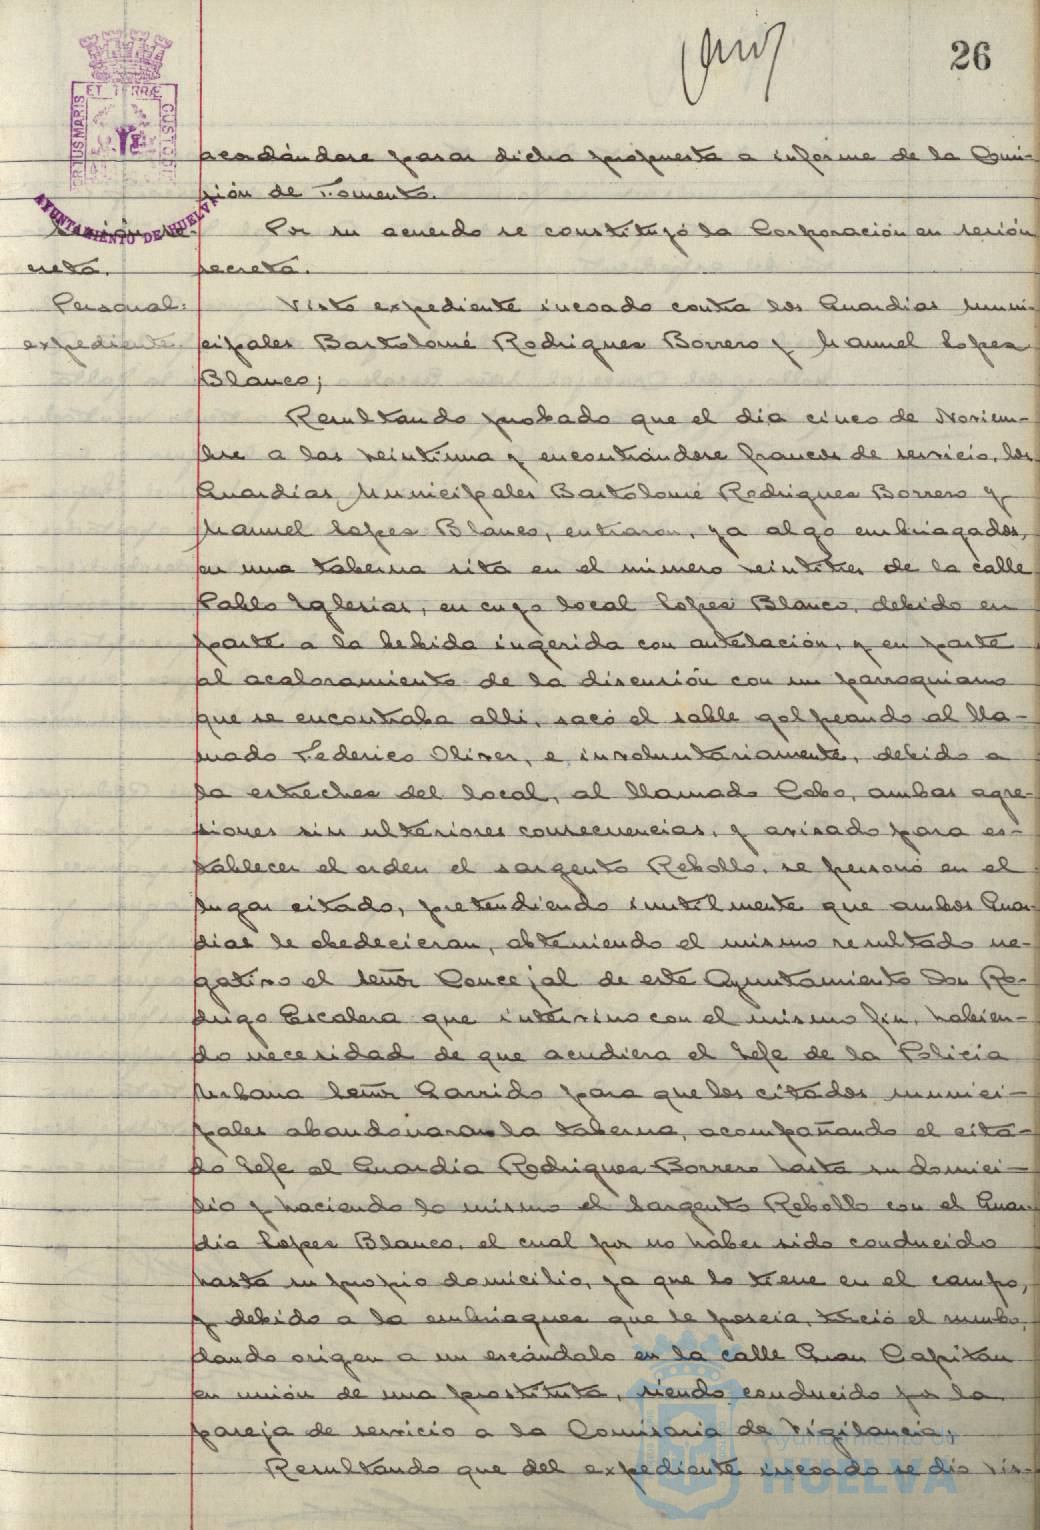 26
ET TERRÆ
PORTUS MARIS
CUSTODIA
AYUNTAMIENTO DE HUELVA
acordándose pasar dicha propuesta a informe de la Comi-
sión de Fomento.
Sesión se-
creta.
Por su acuerdo se constituyó la Corporación en sesión
secreta.
Personal:
expediente.
Visto expediente incoado contra los Guardias Muni-
cipales Bartolomé Rodrigues Borrero y Manuel Lopes
Blanco;
Resultando probado que el dia cinco de Noviem-
bre a las veintiuna y encontrándose francos de servicio, los
Guardias Municipales Bartolomé Rodrigues Borrero y
Manuel Lopes Blanco, entraron, ya algo embriagados,
en una taberna sita en el número veintitres de la calle
Pablo Iglesias, en cuyo local Lopes Blanco, debido en
parte a la bebida ingerida con antelación, y en parte
al acaloramiento de la discusión con un parroquiano
que se encontraba allí, sacó el sable golpeando al lla-
mado Federico Oliver, e involuntariamente, debido a
la estreches del local, al llamado Cobo, ambas agre-
siones sin ulteriores consecuencias, y avisado para es-
tablecer el orden el sargento Rebollo, se personó en el
lugar citado, pretendiendo inutilmente que ambos Guar-
dias le obedecieran, obteniendo el mismo resultado ne-
gativo el Señor Concejal de este Ayuntamiento Don Ro-
drigo Escalera que intervino con el mismo fin, habien-
do necesidad de que acudiera el Jefe de la Policía
Urbana Señor Garrido para que los citados munici-
pales abandonaran la taberna, acompañando el cita-
do Jefe al Guardia Rodrigues Borrero hasta su domici-
lio y haciendo lo mismo el Sargento Rebollo con el Guar-
dia Lopes Blanco, el cual por no haber sido conducido
hasta su propio domicilio, ya que lo tiene en el campo,
y debido a la embriagues que le poseía, torció el rumbo,
dando origen a un escándalo en la calle Gran Capitán
en unión de una prostituta, siendo conducido por la
pareja de servicio a la Comisaria de Vigilancia;
Resultando que del expediente incoado se dio vis-
Ayuntamiento de
HUELVA